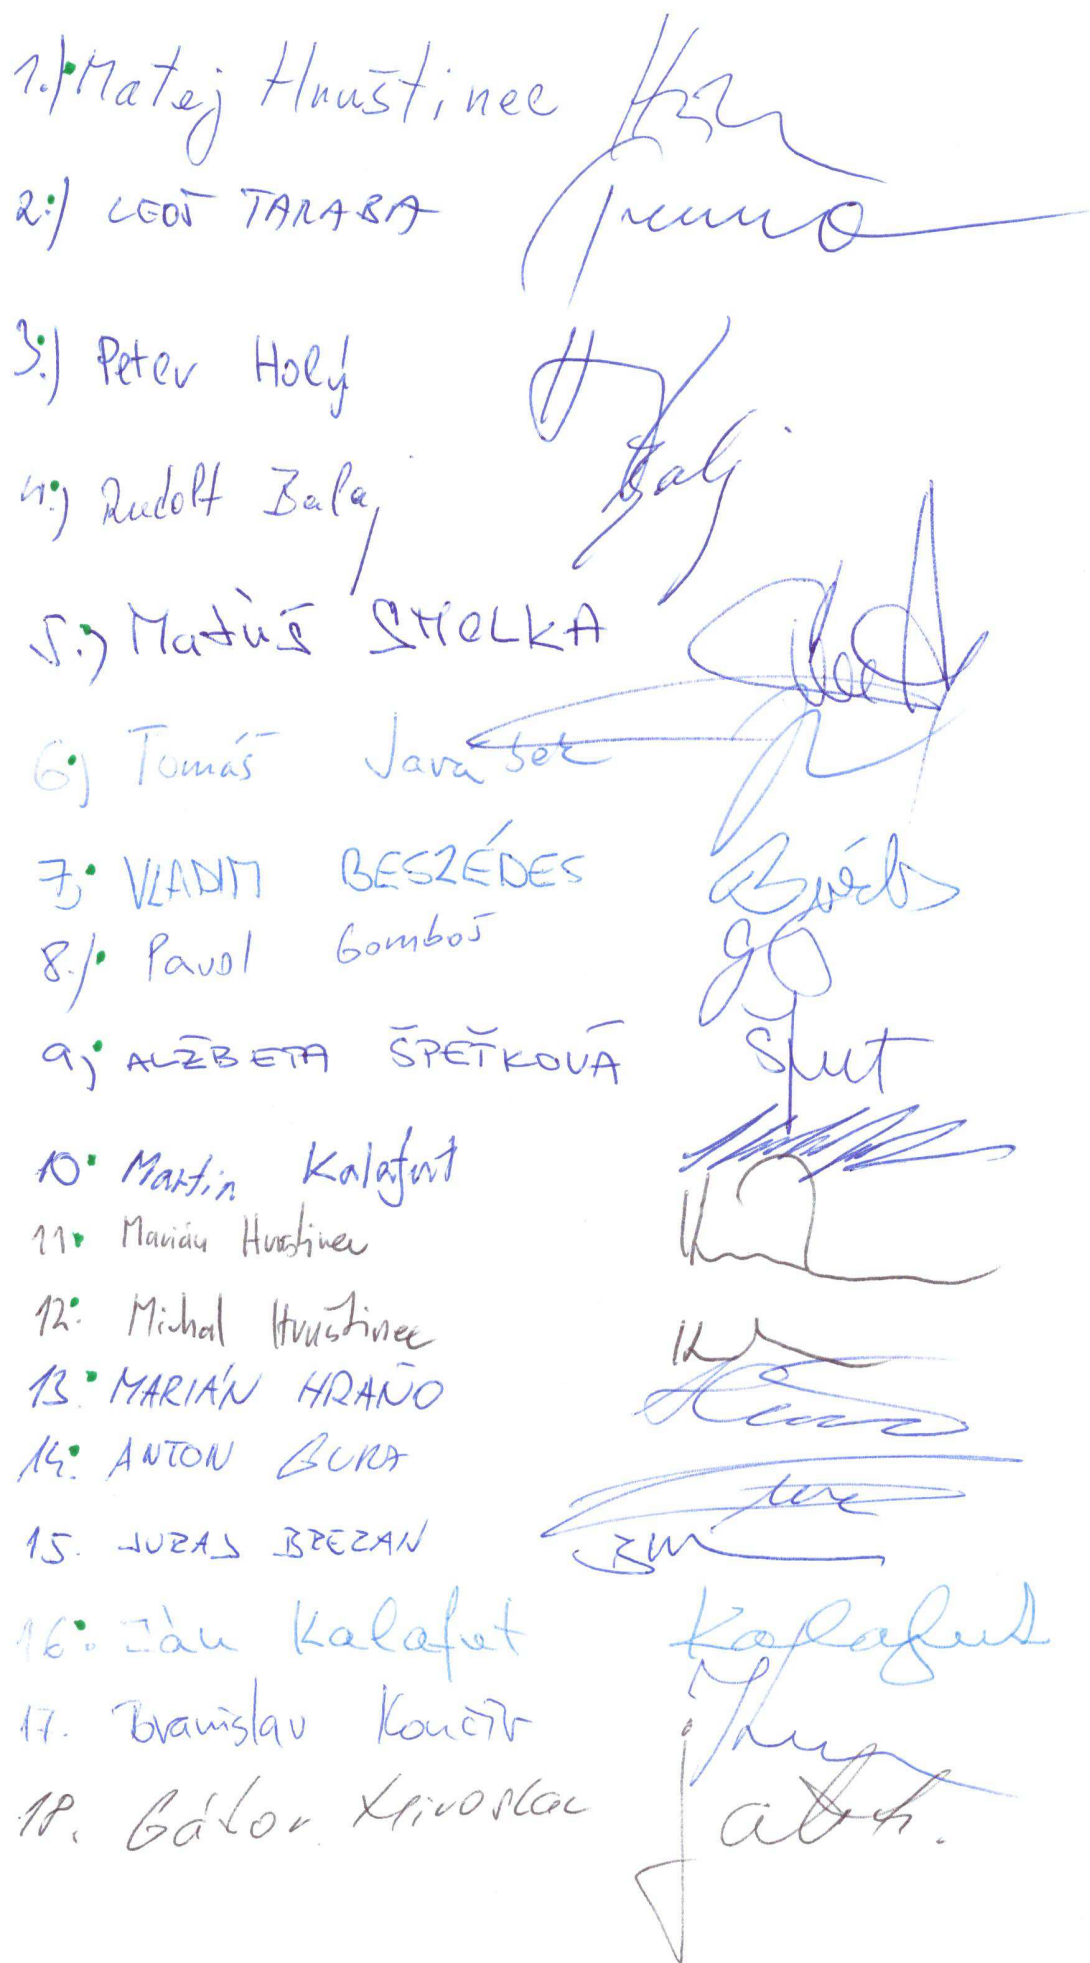 1.) Matej Hnuštinec
2.) LEOŠ TARABA
3.) Peter Holý
4.) Rudolf Balaj
5.) Matúš SMOLKA
6.) Tomáš Java
7.) VLADIM BESZÉDES
8./ Pavol Gomboš
9.) ALŽBETA ŠPEŤKOVÁ
10. Martin Kalafut
11. Marián Hnuštinec
12. Michal Hnuštinec
13. MARIÁN HRAŇO
14. ANTON GURA
15. JURAJ BREZAN
16. Ján Kalafut Kalafut
17. Branislav Končír
18. Gábor Miroslav